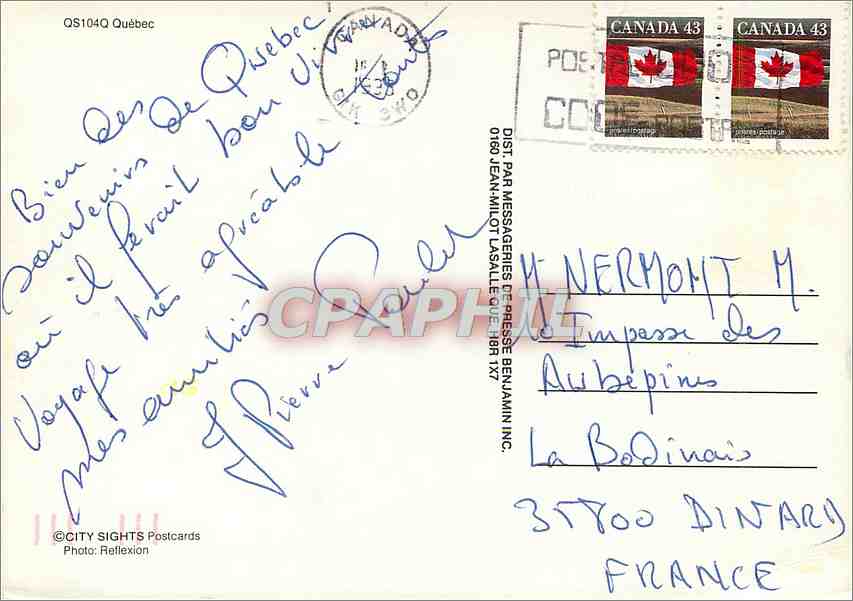 QS104Q Québec
Bien des
souvenirs de Québec
où il ferait bon vivre
Voyage très agréable
toutes
mes amitiés
J Pierre
CANADA
G1K 3W0
POSTAL CODE
CODE POSTAL
CANADA 43
CANADA 43
postes/postage
postes/postage
DIST. PAR MESSAGERIES DE PRESSE BENJAMIN INC.
0160 JEAN-MILOT LASALLE QUE. H8R 1X7
CPAPHIL
Mr NERMONT M.
Impasse des
Aubépines
La Bodinais
35800 DINARD
FRANCE
©CITY SIGHTS Postcards
Photo: Reflexion